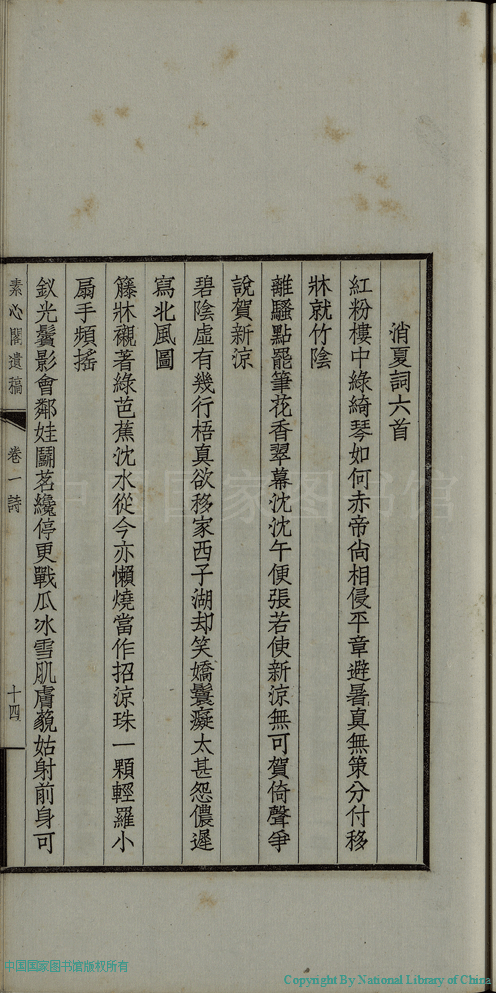 消夏詞六首
紅粉樓中綠綺琴如何赤帝尙相侵平章避暑真無策分付移
牀就竹陰
離騷點罷筆花香翠幕沈沈午便張若使新涼無可賀倚聲爭
說賀新涼
碧陰虛有幾行梧真欲移家西子湖却笑嬌鬟癡太甚怨儂遲
寫北風圖
簾牀襯著綠芭蕉沈水從今亦懶燒當作招涼珠一顆輕羅小
扇手頻搖
釵光鬢影會鄰娃鬬茗纔停更戰瓜冰雪肌膚藐姑射前身可
素心閣遺稿
卷一詩
十四
中国国家图书馆
中国国家图书馆版权所有
Copyright By National Library of China